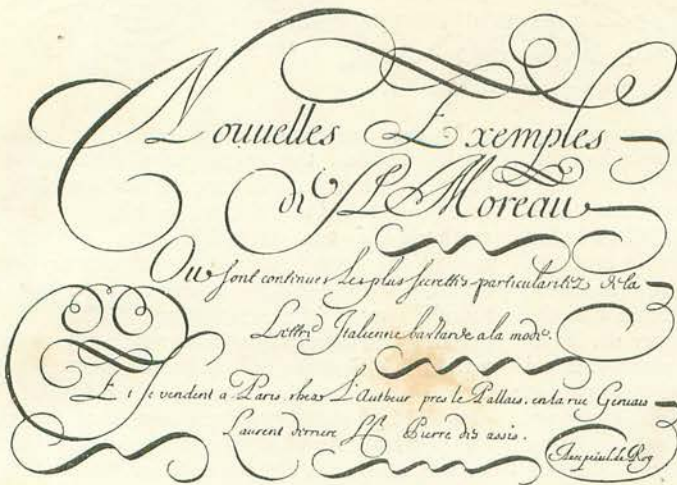 Nouuelles Exemples
de P Moreau
Ou sont continues Les plus secrettes particularitez de la
Lettre Italienne bastarde a la mode.
Et se vendent a Paris chez L'Autheur pres le Pallais, en la rue Geruais
Laurent derriere St Pierre des assis.
Auec priuil. de Roy